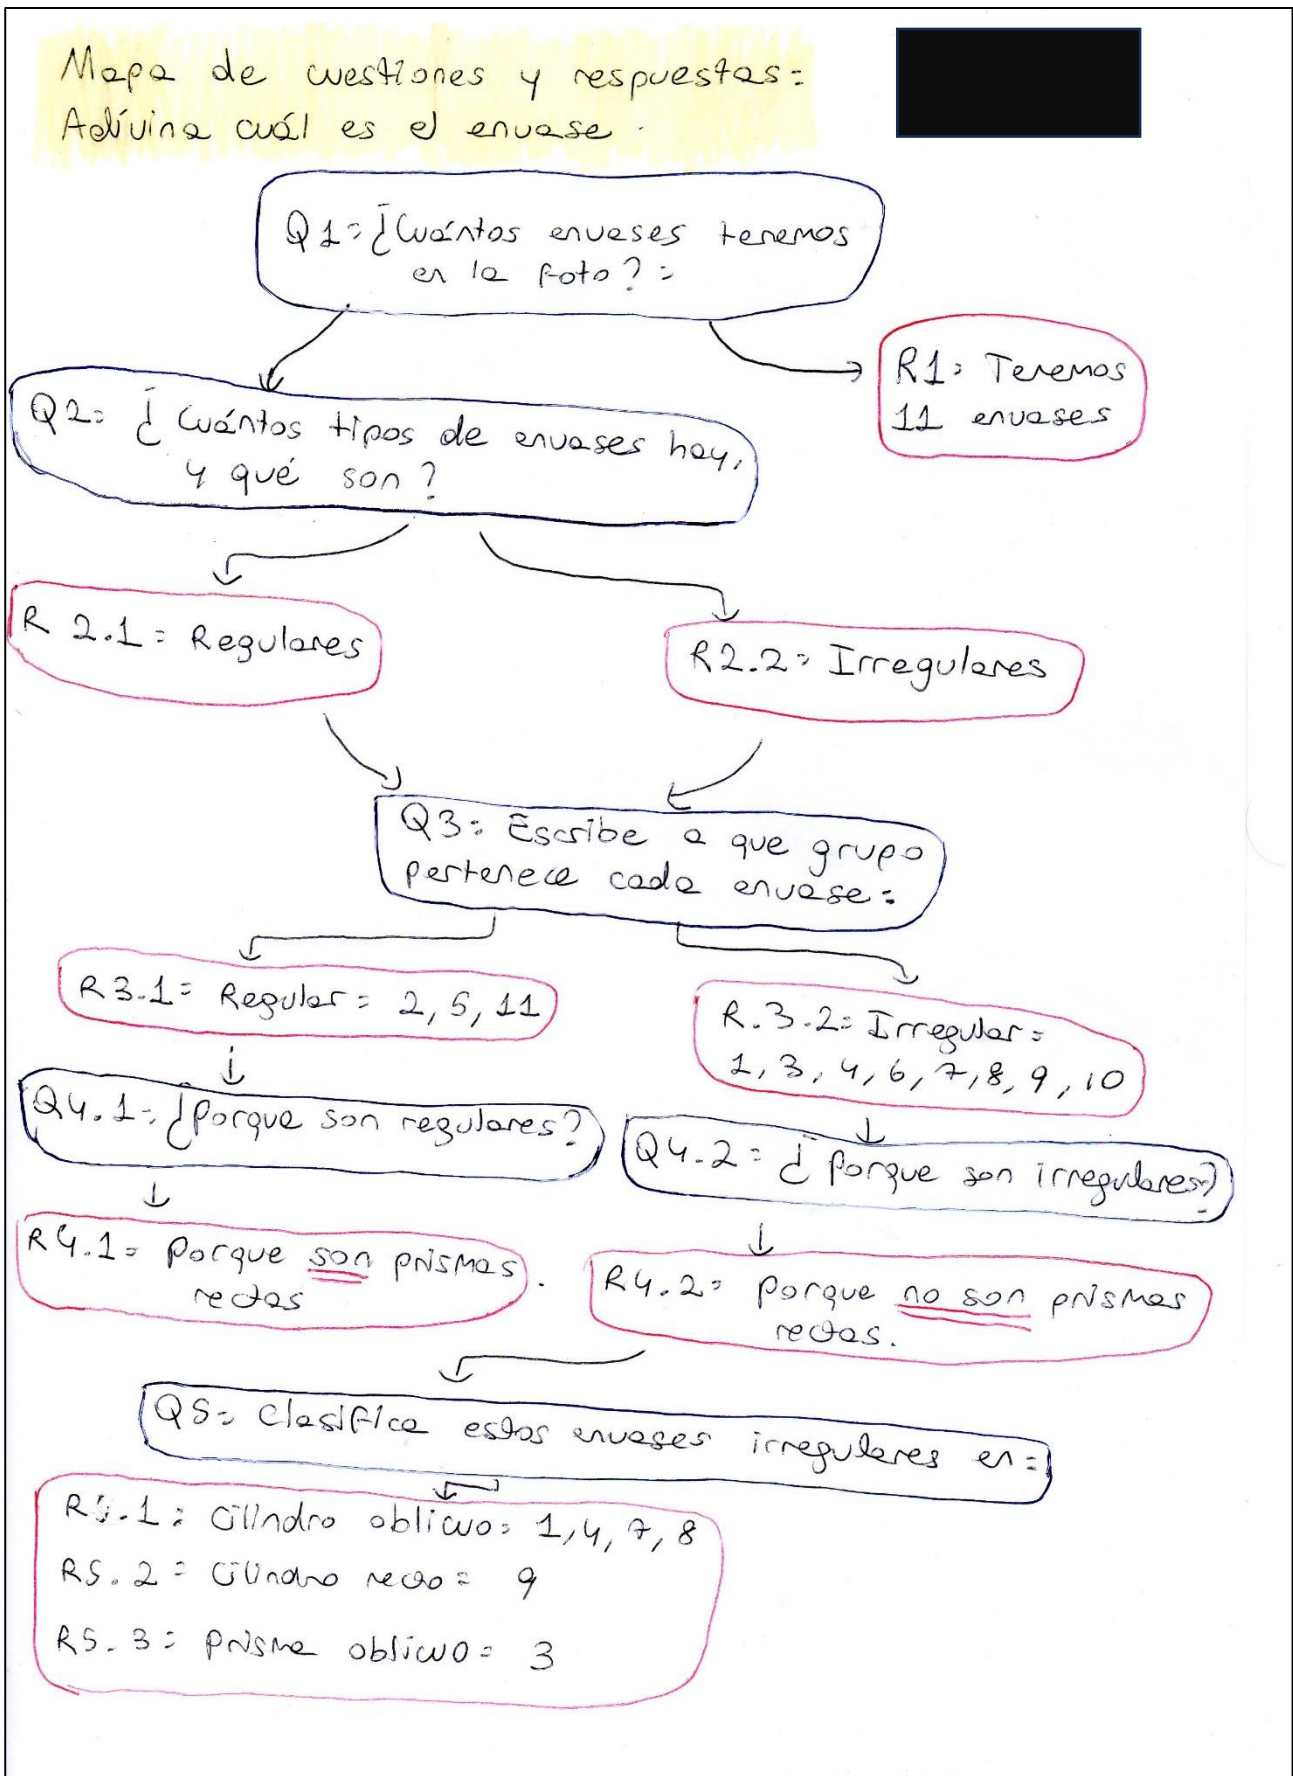 Mapa de cuestiones y respuestas:
Adivina cuál es el envase.
Q1: ¿Cuántos envases tenemos
en la foto?:
R1: Tenemos
11 envases
Q2: ¿Cuántos tipos de envases hay,
y qué son?
R 2.1: Regulares
R2.2: Irregulares
Q3: Escribe a que grupo
pertenece cada envase:
R3.1: Regular: 2, 5, 11
R.3.2: Irregular:
1, 3, 4, 6, 7, 8, 9, 10
Q4.1: ¿Porque son regulares?
Q4.2: ¿Porque son irregulares?
R4.1: Porque son prismas.
rectos
R4.2: Porque no son prismas
rectos.
Q5: Clasifica estos envases irregulares en:
R5.1: Cilindro oblicuo: 1, 4, 7, 8
R5.2: Cilindro recto: 9
R5.3: Prisma oblicuo: 3